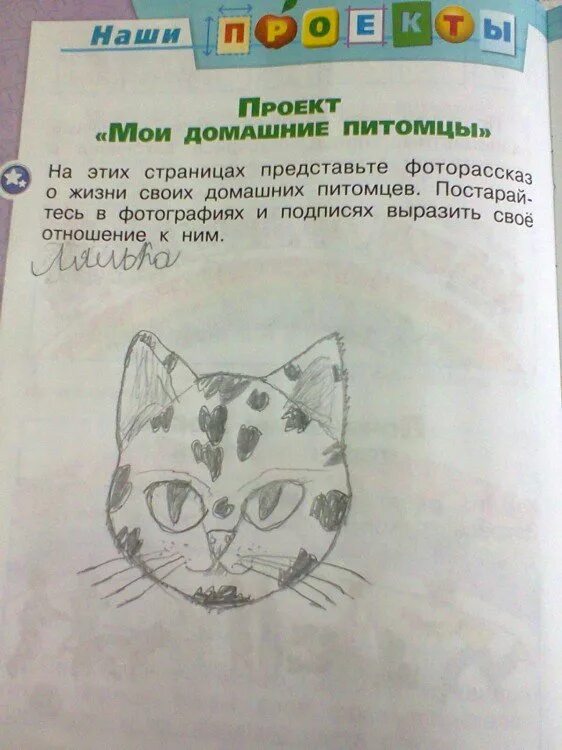 Наши ПРОЕКТЫ
ПРОЕКТ
«МОИ ДОМАШНИЕ ПИТОМЦЫ»
На этих страницах представьте фоторассказ
о жизни своих домашних питомцев. Постарай-
тесь в фотографиях и подписях выразить своё
отношение к ним.
Лялька